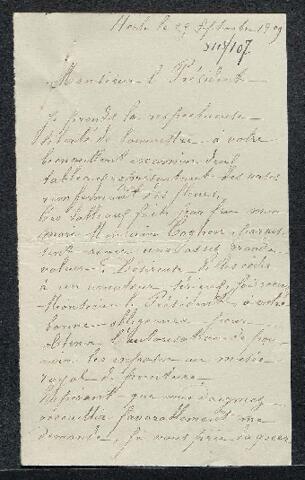 le 29 Septembre 1909
Monsieur l Président
Je prends la respectueuse
liberté de soumettre à votre
bienveillant examen deux
tableaux représentant des vases
renfermant des fleurs.
Ces tableaux faits par feu mon
mari Monsieur
sent avoir une assez grande
valeur. Désireuse de les céder
à un amateur sérieux, j'ai recours
Monsieur le Président à votre
bonne obligeance pour
obtenir l'autorisation de pou
voir les exposer au musée
royal de peinture.
Espérant que vous daignez
accueillir favorablement ma
demande, je vous prie d'agréer